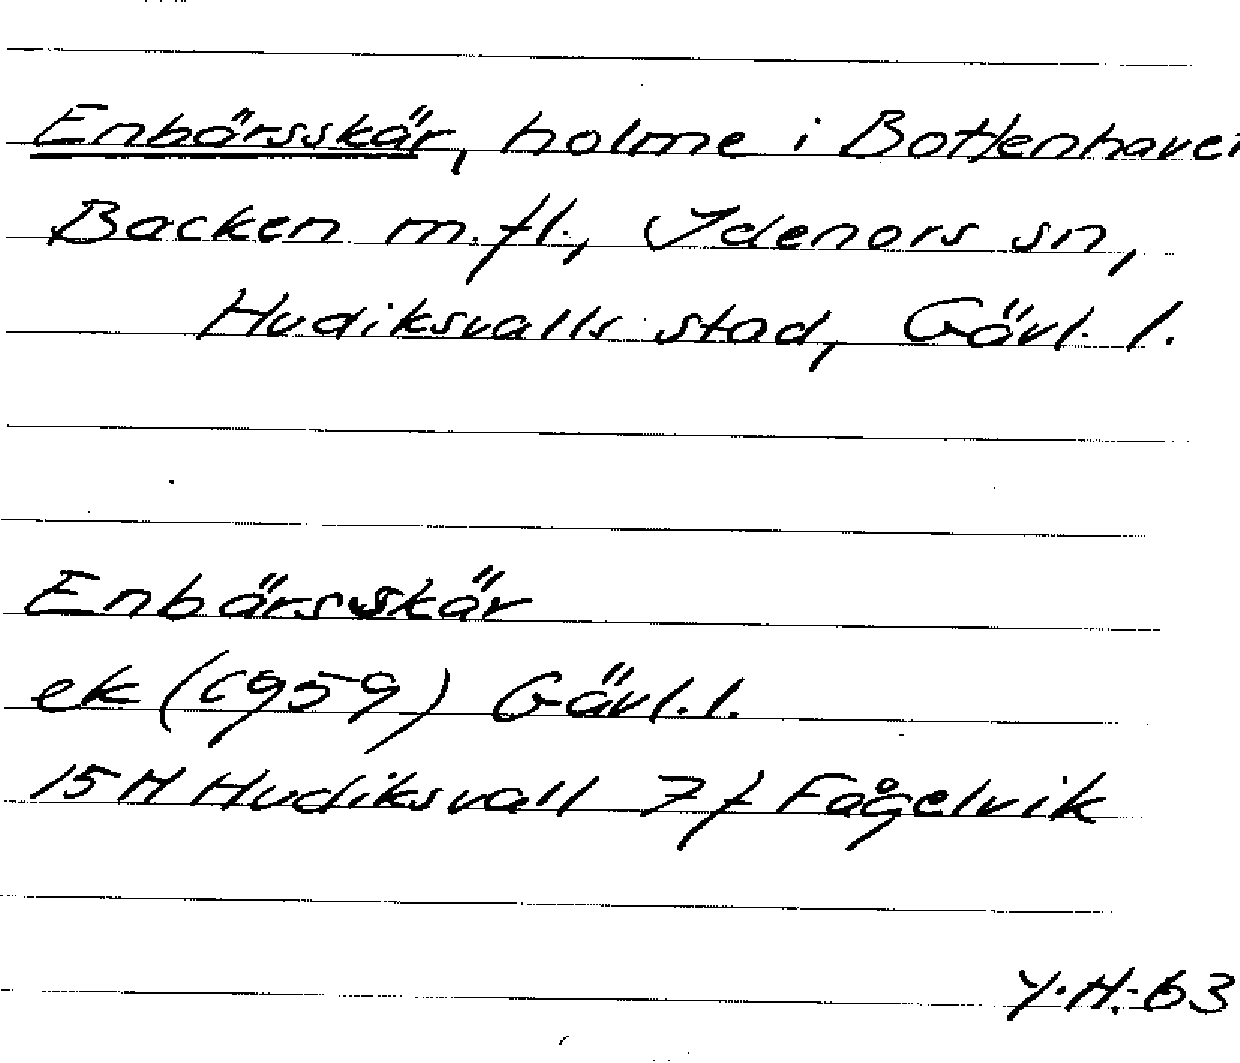 Enbärsskär, holme i Bottenhavet
Backen m.fl., Idenors sn,
Hudiksvalls stad, Gävl. l.
Enbärsskär
ek (c959) Gävl. l.
15 H Hudiksvall 7 f Fågelvik
Y.H.-63